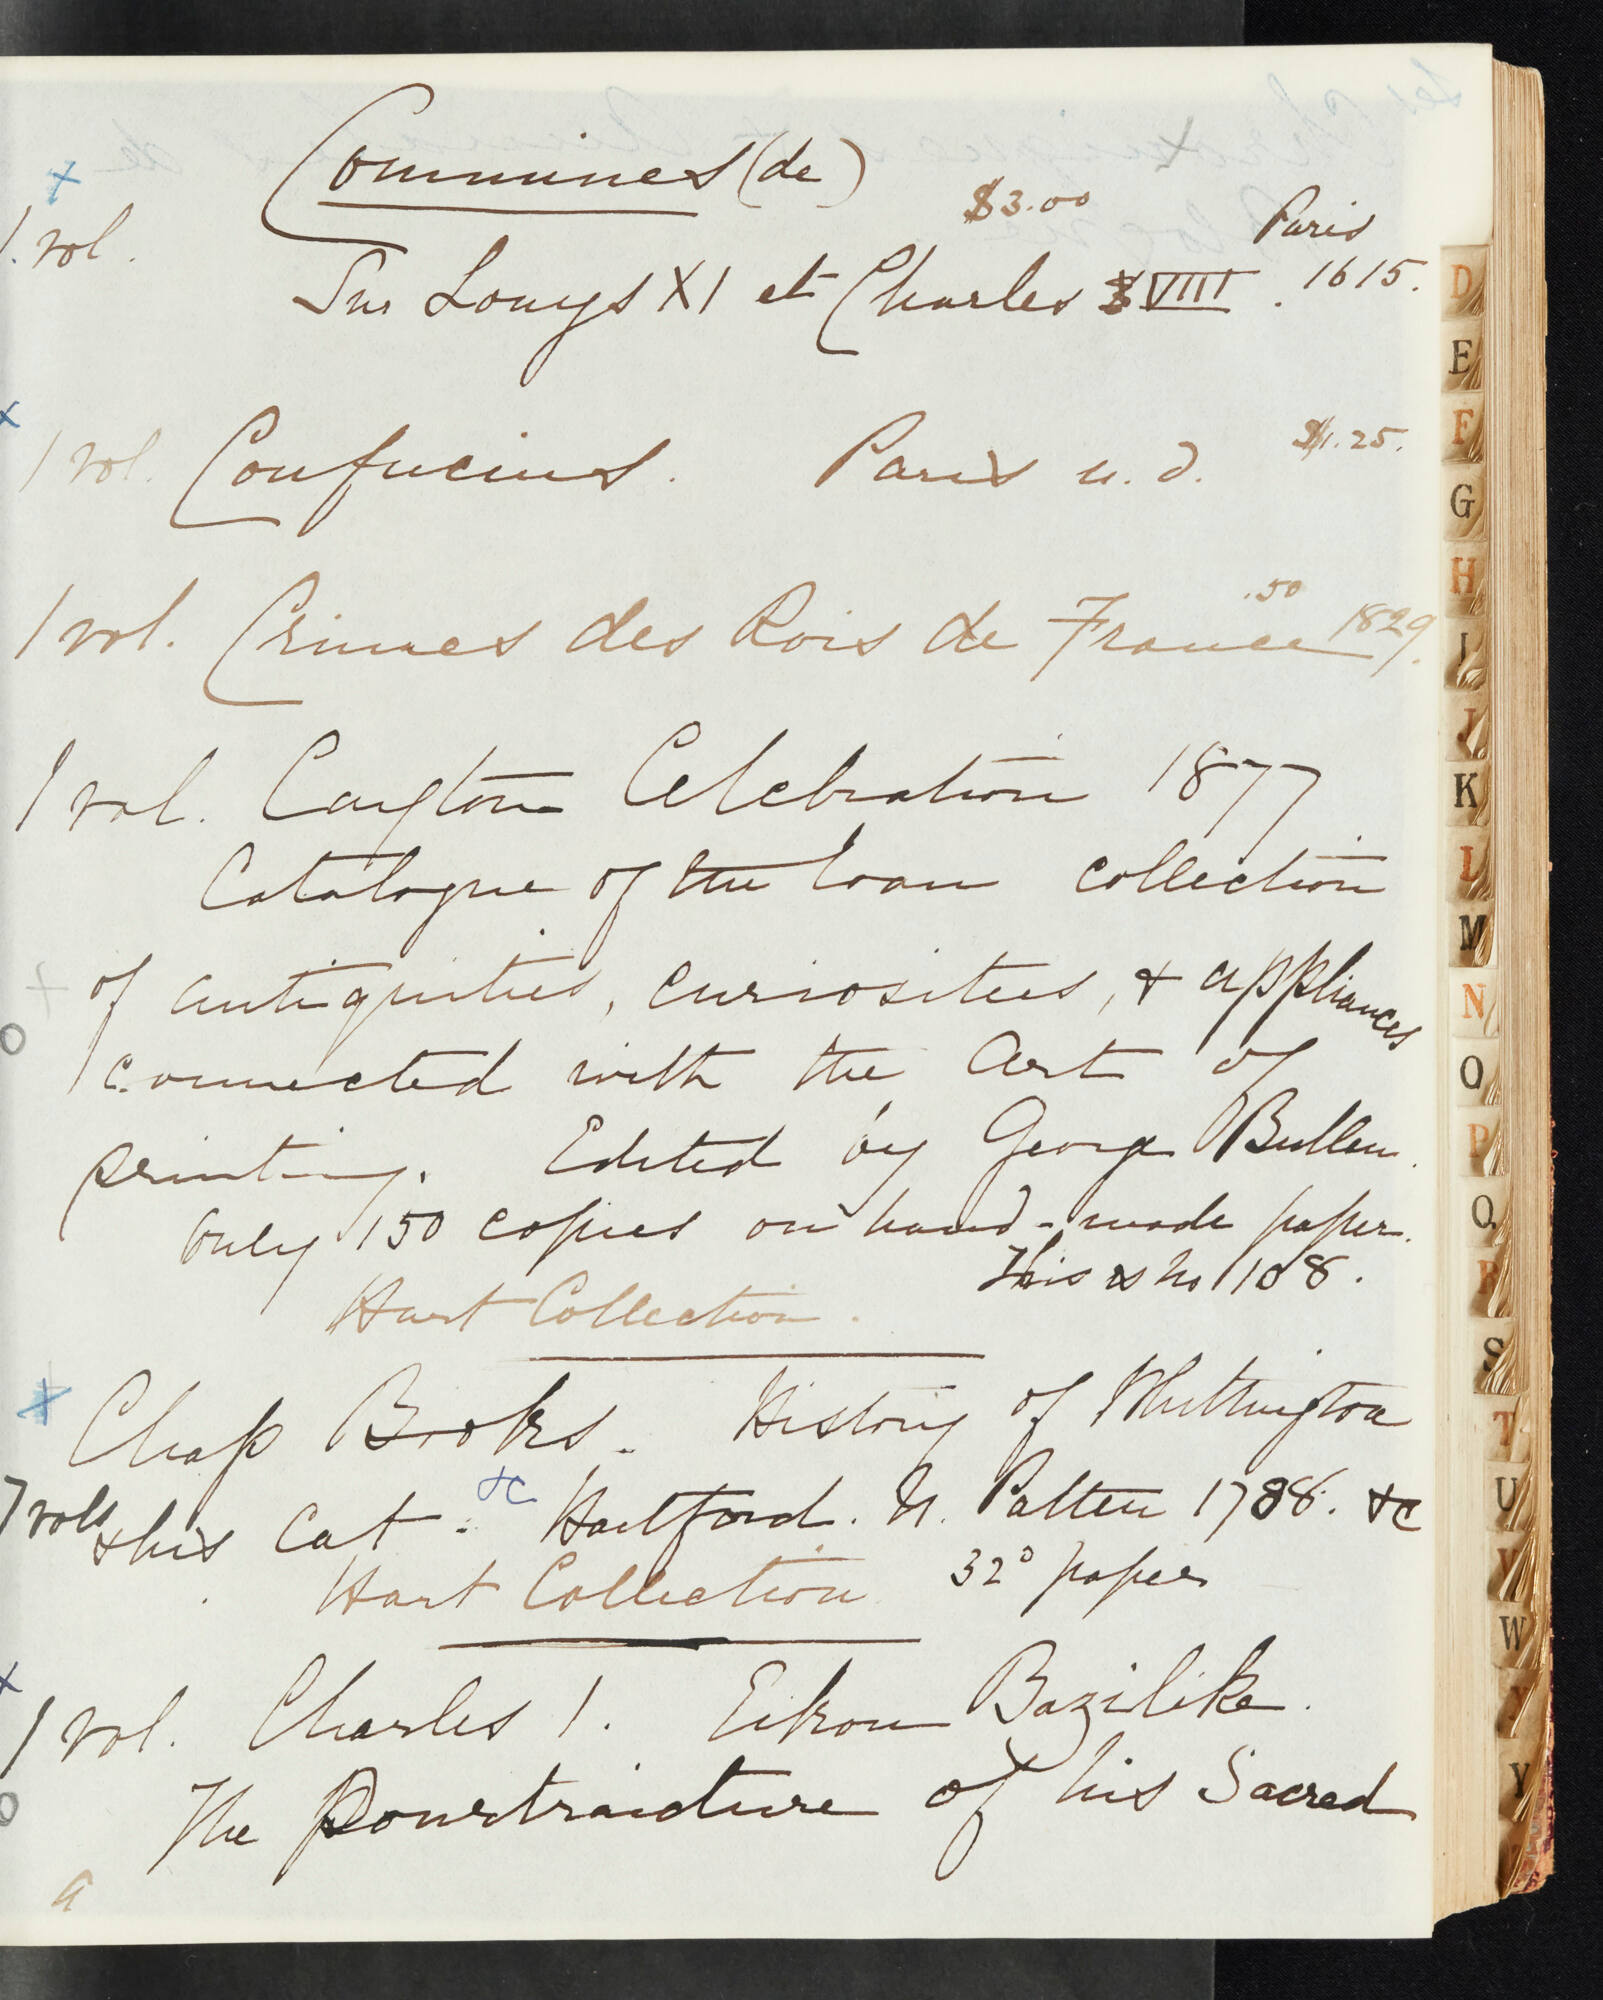 Commines (de)
$3.00
Paris
1 vol.
Sur Louys XI et Charles VIII. 1615.
1 vol. Confucius. Paris n.d. $1.25.
1 vol. Crimes des Rois de France .50 1829.
1 vol. Caxton Celebration 1877
Catalogue of the loan collection
of antiquities, curiosities, & appliances
connected with the Art of
printing. Edited by George Bullen.
Only 150 copies on hand-made paper.
This is no 108.
Hart Collection.
Chap Books. History of Whittington
7 vols this Cat. &c Hartford. N. Patten 1788. &c
Hart Collection 32° paper
1 vol. Charles I. Eikon Bazilike.
The Pourtraicture of his Sacred
D
E
F
G
H
I
J
K
L
M
N
O
P
Q
R
S
T
U
V
W
Y